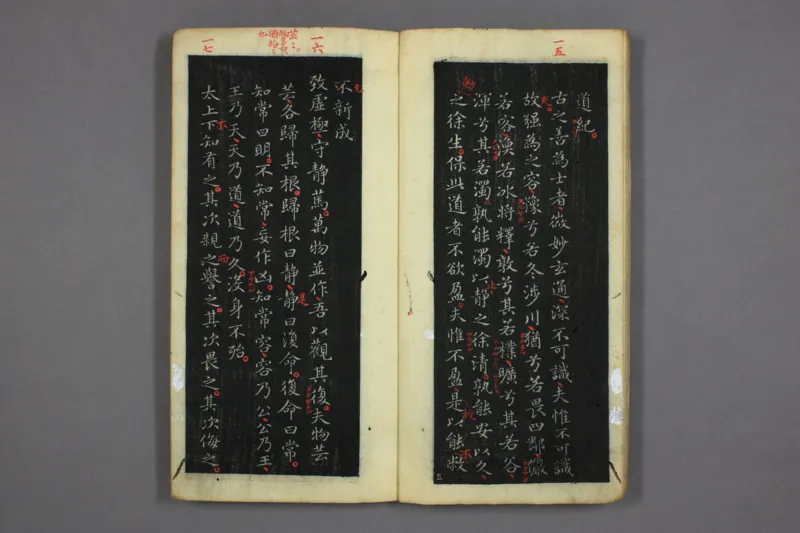 一五
道紀
古之善為士者微妙玄通深不可識夫惟不可識
故强為之容豫兮若冬涉川猶兮若畏四鄰儼
若客渙若冰將釋敦兮其若樸曠兮其若谷
渾兮其若濁孰能濁以静之徐清孰能安以久
之徐生保此道者不欲盈夫惟不盈是以能敝
一六
不新成
致虛極守静篤萬物並作吾以觀其復夫物芸
芸各歸其根歸根曰静静曰復命復命曰常
知常曰明不知常妄作凶知常容容乃公公乃王
王乃天天乃道道乃久没身不殆
一七
太上下知有之其次親之譽之其次畏之其次侮之